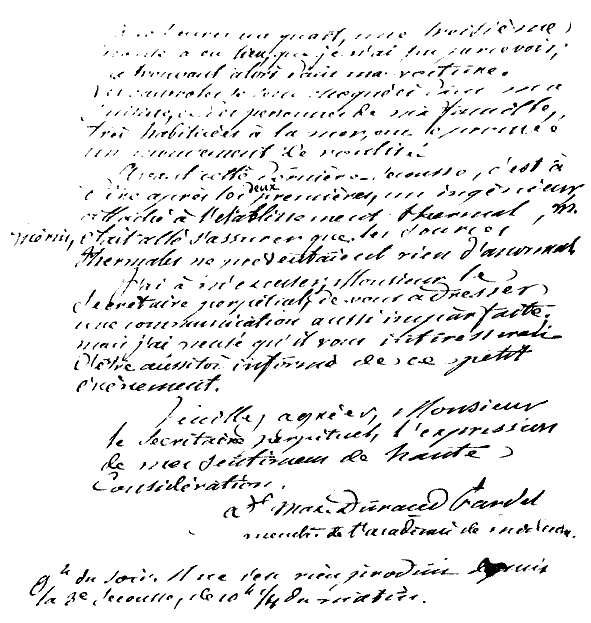 un quart, une troisième
a eu lieu, que je n'ai pu percevoir,
me trouvant alors dans ma voiture.
Les secousses se sont dans ma
personnes de ma famille,
très habituées à la mer, ont éprouvé
un mouvement de roulis.
Avant cette dernière secousse, c'est à
dire après les deux premières, un ingénieur
attaché à l'établissement thermal, M.
était allé s'assurer que les sources
thermales ne présentaient rien d'anormal
J'ai à m'excuser, Monsieur le
Secrétaire perpétuel, de vous adresser
une communication aussi imparfaite.
mais j'ai pensé qu'il vous intéresserait
d'être aussitôt informé de ce petit
évènement.
Veuillez agréer, Monsieur
le Secrétaire perpétuel, l'expression
de mes sentiments de haute
Considération.
Dr Max. Durand Fardel
membre de l'académie de médecine.
9h du soir. Il ne s'en rien produit depuis
la 3e secousse, de 10h 1/4 du matin.